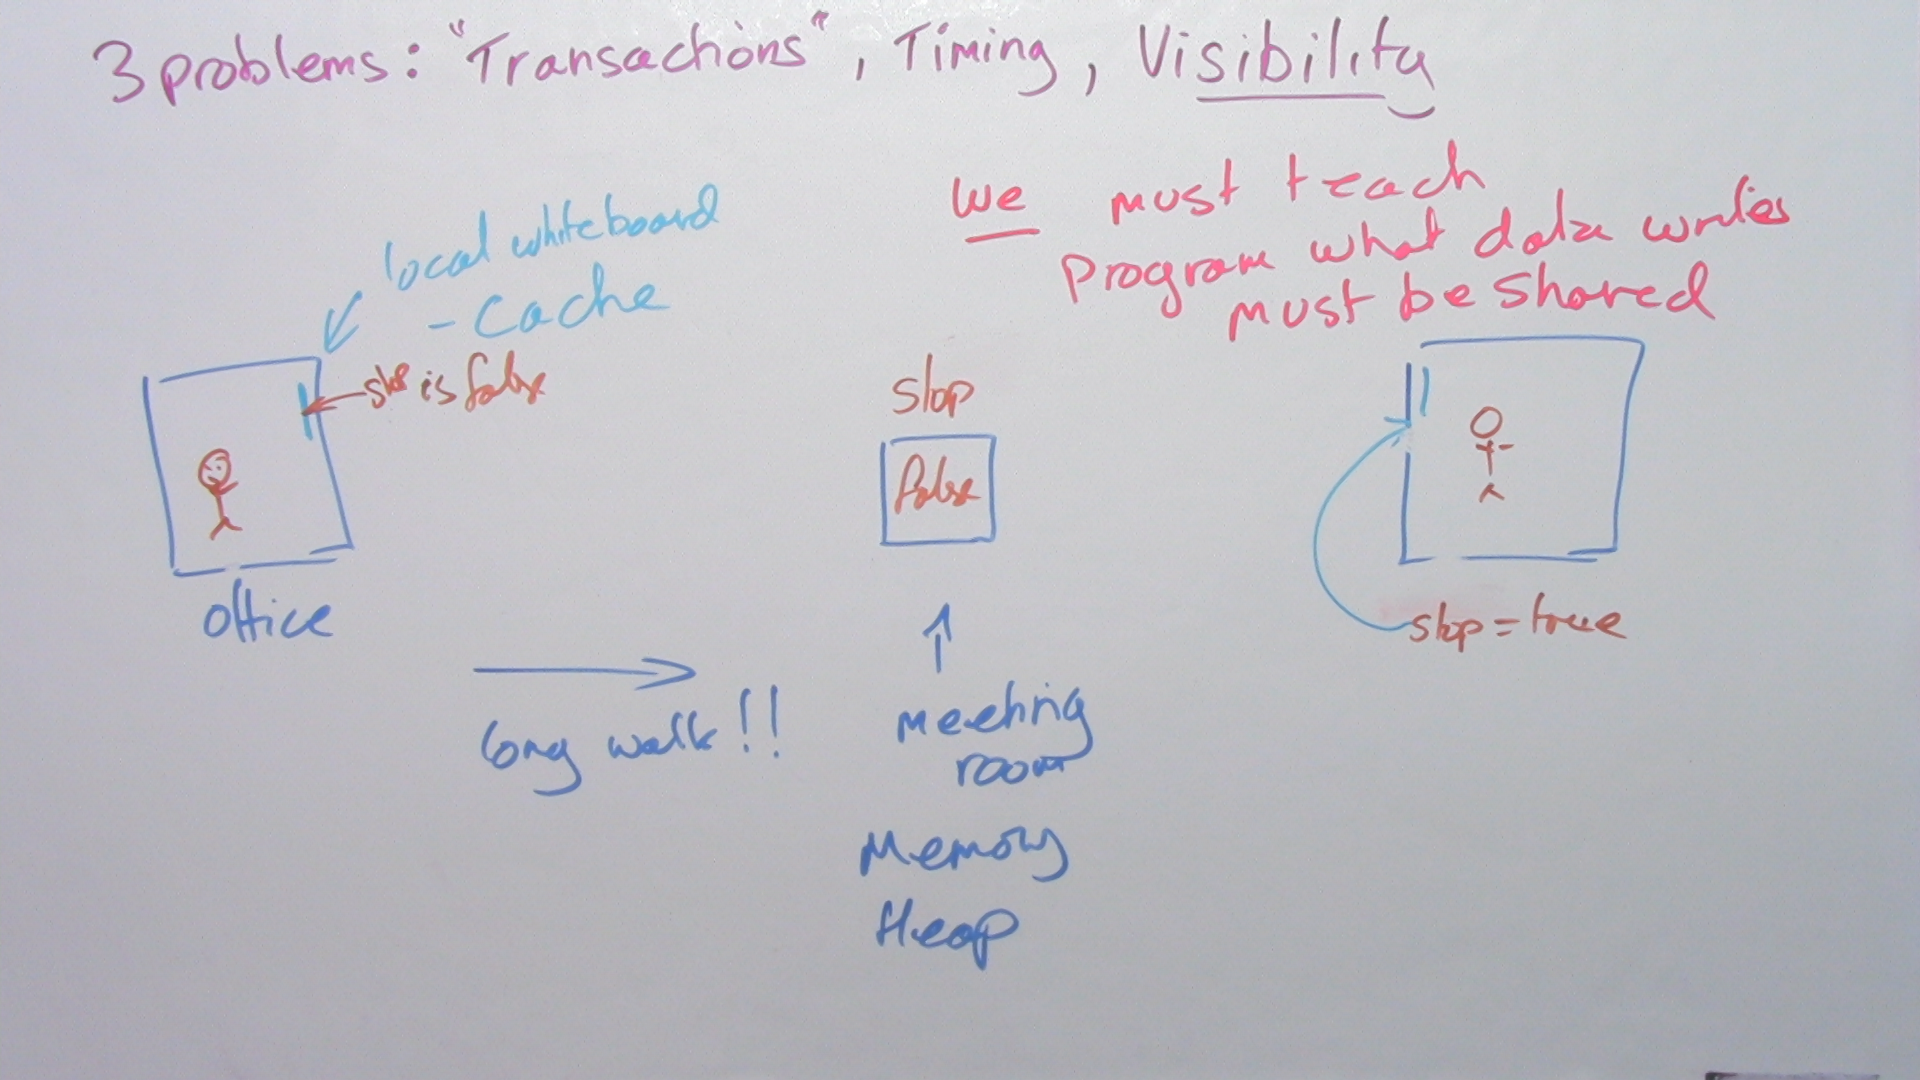 3 problems: "Transactions", Timing, Visibility
we must teach
program what data writes
must be shared
local whiteboard
- Cache
stop is false
stop
false
office
stop = true
long walk!!
meeting
room
Memory
Heap